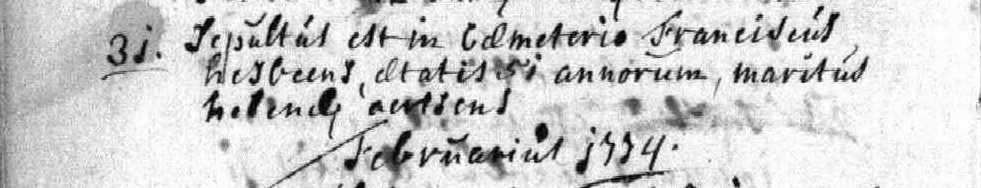 31. Sepultus est in Cæmeterio Franciscus
hesbeens, ætatis 51 annorum, maritus
helenæ aertsens
Februarius 1774.